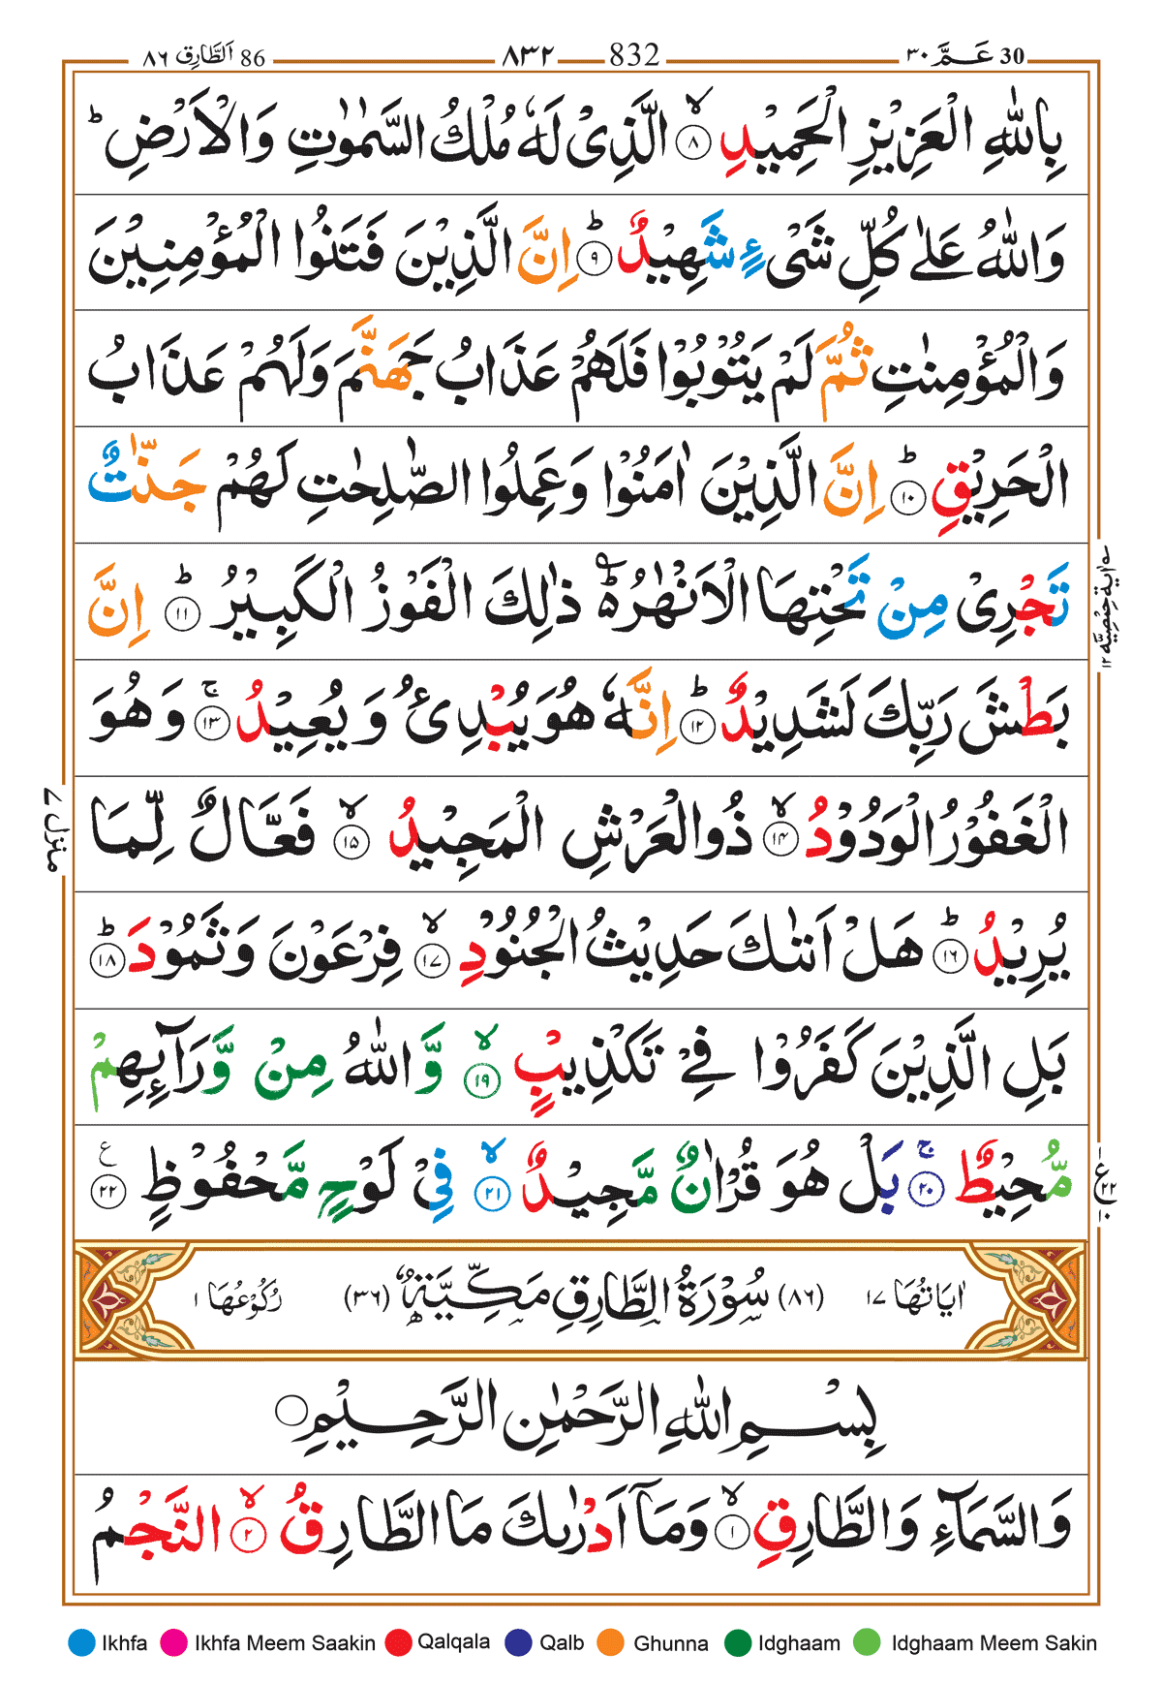 30 عَمَّ ٣٠ 832 ٨٣٢ 86 اَلطَّارِق ٨٦
بِاللّٰهِ الْعَزِيْزِ الْحَمِيْدِ ۙ‏﴿۸﴾ الَّذِىْ لَهٗ مُلْكُ السَّمٰوٰتِ وَالْاَرْضِ ؕ
وَاللّٰهُ عَلٰى كُلِّ شَىْءٍ شَهِيْدٌ ؕ‏﴿۹﴾ اِنَّ الَّذِيْنَ فَتَنُوا الْمُؤْمِنِيْنَ
وَالْمُؤْمِنٰتِ ثُمَّ لَمْ يَتُوْبُوْا فَلَهُمْ عَذَابُ جَهَنَّمَ وَلَهُمْ عَذَابُ
الْحَرِيْقِ ؕ‏﴿۱۰﴾ اِنَّ الَّذِيْنَ اٰمَنُوْا وَعَمِلُوا الصّٰلِحٰتِ لَهُمْ جَنّٰتٌ
تَجْرِىْ مِنْ تَحْتِهَا الْاَنْهٰرُ ؕؔ ذٰلِكَ الْفَوْزُ الْكَبِيْرُ ؕ‏﴿۱۱﴾ اِنَّ
بَطْشَ رَبِّكَ لَشَدِيْدٌ ؕ‏﴿۱۲﴾ اِنَّهٗ هُوَ يُبْدِئُ وَ يُعِيْدُ ۚ‏﴿۱۳﴾ وَهُوَ
الْغَفُوْرُ الْوَدُوْدُ ۙ‏﴿۱۴﴾ ذُو الْعَرْشِ الْمَجِيْدُ ۙ‏﴿۱۵﴾ فَعَّالٌ لِّمَا
يُرِيْدُ ؕ‏﴿۱۶﴾ هَلْ اَتٰىكَ حَدِيْثُ الْجُنُوْدِ ۙ‏﴿۱۷﴾ فِرْعَوْنَ وَثَمُوْدَ ؕ‏﴿۱۸﴾
بَلِ الَّذِيْنَ كَفَرُوْا فِىْ تَكْذِيْبٍ ۙ‏﴿۱۹﴾ وَّاللّٰهُ مِنْ وَّرَآئِهِمْ
مُّحِيْطٌ ۚ‏﴿۲۰﴾ بَلْ هُوَ قُرْاٰنٌ مَّجِيْدٌ ۙ‏﴿۲۱﴾ فِىْ لَوْحٍ مَّحْفُوْظٍ‏ ﴿۲۲﴾ ع
اٰيَاتُهَا ١٧ (٨٦) سُوْرَةُ الطَّارِقِ مَكِّيَّةٌ (٣٦) رُكُوْعُهَا ١
بِسْمِ اللّٰهِ الرَّحْمٰنِ الرَّحِيْمِ
وَالسَّمَآءِ وَالطَّارِقِ ۙ‏﴿۱﴾ وَمَاۤ اَدْرٰىكَ مَا الطَّارِقُ ۙ‏﴿۲﴾ النَّجْمُ
منزل ٧
Ikhfa Ikhfa Meem Saakin Qalqala Qalb Ghunna Idghaam Idghaam Meem Sakin